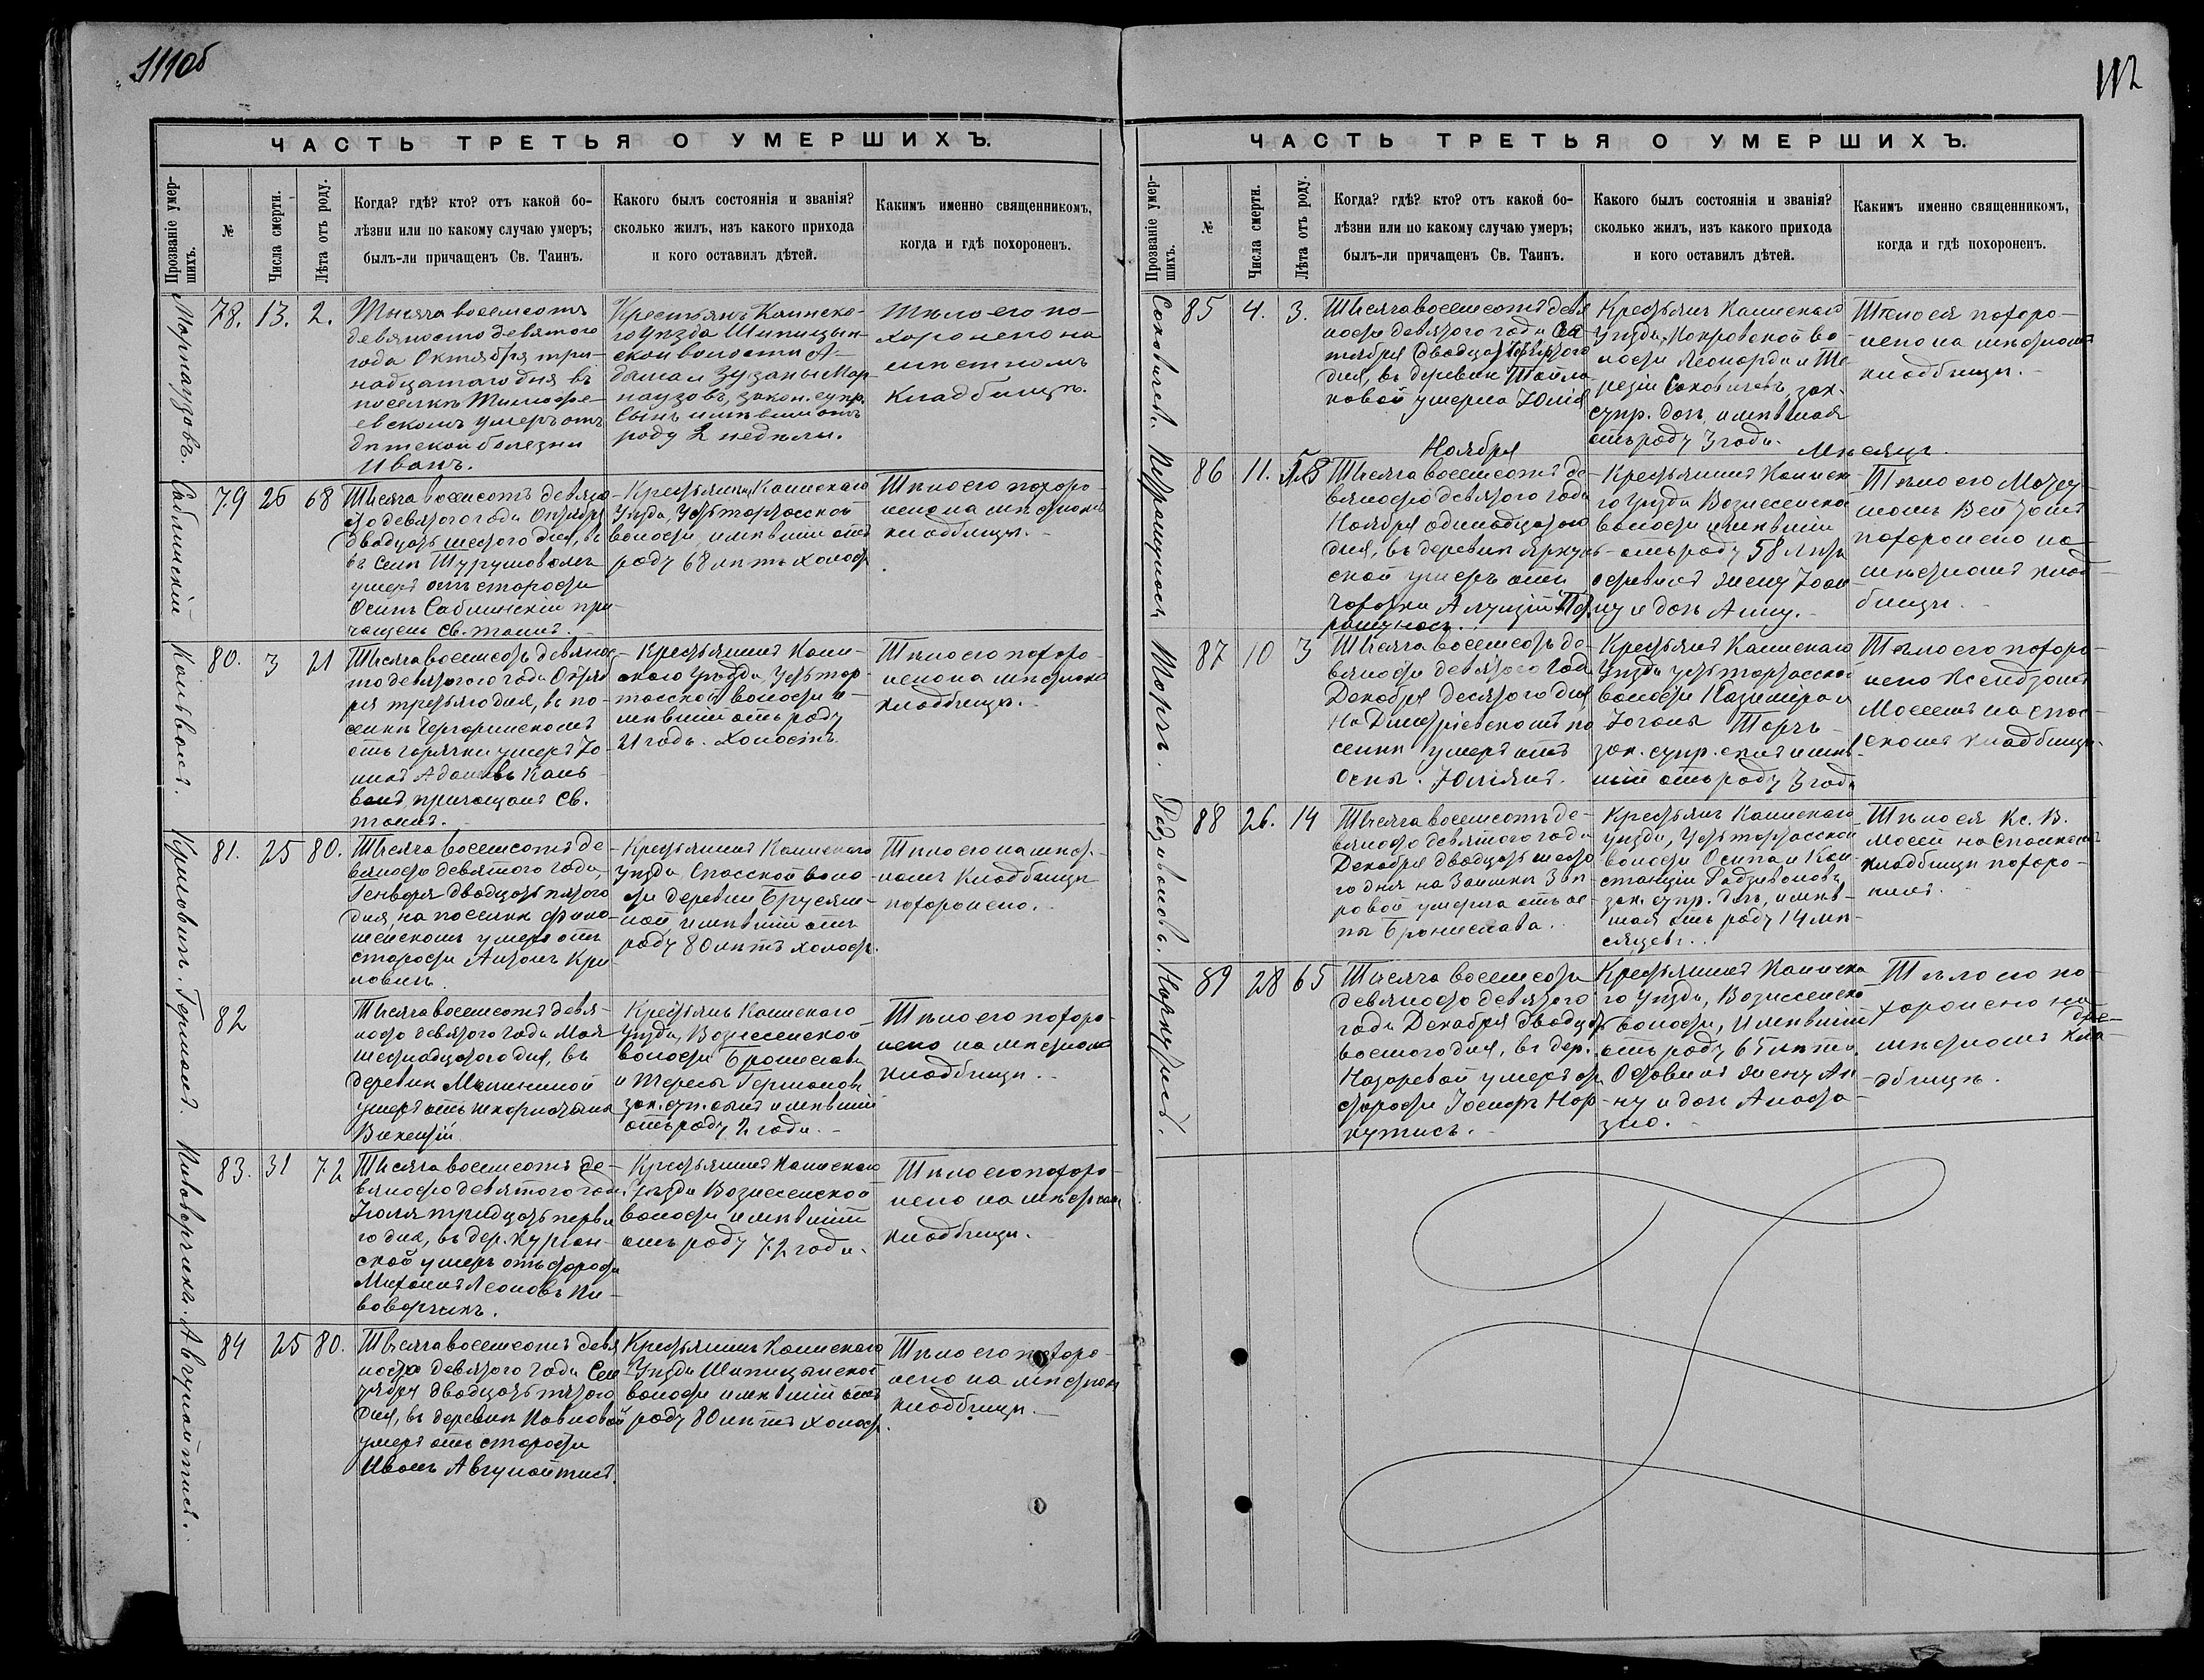 111об
ЧАСТЬ ТРЕТЬЯ О УМЕРШИХЪ.
Прозваніе умер-
шихъ.
№
Числа смерти.
Лѣта отъ роду.
Когда? гдѣ? кто? отъ какой бо-
лѣзни или по какому случаю умеръ;
былъ-ли причащенъ Св. Таинъ.
Какого былъ состоянія и званія?
сколько жилъ, изъ какого прихода
и кого оставилъ дѣтей.
Какимъ именно священникомъ,
когда и гдѣ похороненъ.
78. 13. 2.
Тысяча восемсотъ
девяносто девятого
года Октября три-
надцатаго дня въ
поселкѣ Тимофе-
евскомъ умеръ отъ
дѣтской болезни
Иванъ.
Крестьянъ Каинска-
го уѣзда Шипицын-
ской волости А-
дама и Зузаны Мар-
наузовъ, закон. супр.
сынъ имѣвши отъ
роду 2 недѣли.
Тѣло его по-
хоронено на
мѣстномъ
кладбищѣ.
Саблинскій
79 26 68
Тысяча восемсотъ девяно-
сто девятого года Октября
двадцать шестого дня, въ
въ селѣ Турумовомъ
умеръ отъ старости
Осипъ Саблинскій при-
чащенъ св. таинъ.
Крестьянинъ Каинскаго
Уѣзда, Устьтартасской
волости, имѣвшій отъ
роду 68 лѣтъ холост
Тѣло его похоро-
нено на мѣстномъ
кладбищѣ.
80. 3 21
Тысяча восемсотъ девянос-
то девятого года Октяб-
ря третьяго дня, въ по-
селкѣ
отъ горячки умеръ
Адамовъ
причащенъ св.
таинъ.
Крестьянинъ Каин-
скаго Уѣзда, Устьтар-
тасской волости и-
мѣвшій отъ роду
21 годъ. Холостъ.
Тѣло его похоро-
нено на мѣстномъ
кладбищѣ.
Криловичъ.
81. 25 80.
Тысяча восемсотъ де-
вяносто девятого года,
Генваря двадцать пятого
дня, на поселкѣ
умеръ отъ
старости Антонъ Кри-
ловичъ.
Крестьянинъ Каинскаго
Уѣзда, Спасской воло-
сти деревни
имѣвшій отъ
роду 80 лѣтъ холост.
Тѣло его на мѣст-
номъ кладбищѣ
похоронено.
Германъ.
82
Тысяча восемсотъ девя-
носто девятого года Мая
шестнадцатого дня, въ
деревнѣ Малининой
умеръ отъ
Викентій.
Крестьянъ Каинскаго
Уѣзда, Вознесенской
волости Бронислава
и Терезы Германовъ
зак. суп. сынъ имѣвшій
отъ роду 2 года.
Тѣло его похоро-
нено на мѣстномъ
кладбищѣ.
Пивоварчикъ.
83. 31 72
Тысяча восемсотъ де-
вяносто девятого года
Іюля тридцать перва
го дня, въ дер. Курган-
ской умеръ отъ старости
Михаилъ Леоновъ Пи-
воварчикъ.
Крестьянинъ Каинскаго
Уѣзда Вознесенской
волости имѣвшій
отъ роду 72 года.
Тѣло его похоро-
нено на мѣстномъ
кладбищѣ.
Авгулайтисъ.
84 25 80.
Тысяча восемсотъ девя
носто девятого года Сен
тября двадцать пятого
дня, въ деревнѣ Павловой
умеръ отъ старости
Иванъ Авгулайтисъ.
Крестьянинъ Каинскаго
Уѣзда Шипицынской
волости имѣвшій отъ
роду 80 лѣтъ холост.
Тѣло его похоро-
нено на мѣстномъ
кладбищѣ.
112
ЧАСТЬ ТРЕТЬЯ О УМЕРШИХЪ.
Прозваніе умер-
шихъ.
№
Числа смерти.
Лѣта отъ роду.
Когда? гдѣ? кто? отъ какой бо-
лѣзни или по какому случаю умеръ;
былъ-ли причащенъ Св. Таинъ.
Какого былъ состоянія и званія?
сколько жилъ, изъ какого прихода
и кого оставилъ дѣтей.
Какимъ именно священникомъ,
когда и гдѣ похороненъ.
85 4. 3.
Тысяча восемсотъ девя
носто девятого года Сен
тября двадцать четвертого
дня, въ деревнѣ
умерла Юлія
Крестьянъ Каинскаго
Уѣзда, Покровской во
лости Леонарда и Те
резіи Саковичевъ, зак.
супр. дочь, имѣвшая
отъ роду 3 года.
Тѣло ея похоро-
нено на мѣстномъ
кладбищѣ.
Ноября Мѣсяцъ.
86 11. 58
Тысяча восемсотъ де-
вяносто девятого года
Ноября одинадцатого
дня, въ деревнѣ Яркуль-
ской умеръ отъ
чахотки
Крестьянинъ Каинска
го Уѣзда Вознесенской
волости имѣвшій
отъ роду 58 лѣтъ
оставилъ жену Іоан
ну и дочь Анну.
Тѣло его
похоронено на
мѣстномъ клад-
бищѣ.
Торъ.
87 10 3
Тысяча восемсотъ де-
вяносто девятого года
Декабря десятого дня
на Дмитріевскомъ по
селкѣ умеръ отъ
оспы. Юліянъ.
Крестьянъ Каинскаго
Уѣзда Устьтартасской
волости Казиміра и
Торъ
зак. супр. сынъ имѣв-
шій отъ роду 3 года
Тѣло его похоро-
нено Ксендзомъ
на Спас-
скомъ кладбищѣ.
Радзивоновъ.
88 26. 14
Тысяча восемсотъ де-
вяносто девятого года
Декабря двадцать шесто
го дня на Заимкѣ Звѣ
ровой умерла отъ ос-
пы Бронислава.
Крестьянъ Каинскаго
уѣзда, Устьтартасской
волости Осипа и Кон-
станціи Радзивоновъ
зак. супр. дочь, имѣв-
шая отъ роду 14 мѣ-
сяцевъ.
Тѣло ея Кс. В.
на Спасскомъ
кладбищѣ похоро-
нилъ.
Норкутисъ.
89 28 65
Тысяча восемсотъ
девяносто девятого
года Декабря двадцать
восмого дня, въ дер.
Назаревой умеръ отъ
старости Іосифъ Нор-
кутисъ.
Крестьянинъ Каинска
го уѣзда, Вознесенской
волости, имѣвшій
отъ роду 65 лѣтъ.
Оставилъ жену Ан-
ну и дочь Анаста-
зію.
Тѣло его по-
хоронено на
мѣстномъ кла-
дбищѣ.